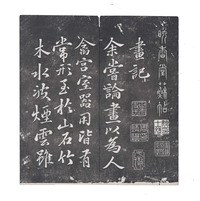 晚香堂蘇帖
畫記
余嘗論畫以為人
禽宮室器用皆有
常形至於山石竹
木水波煙雲雖